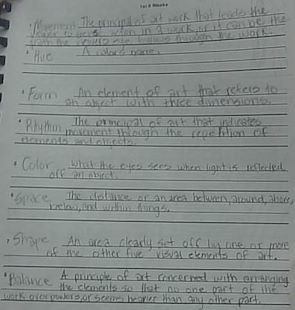 1st 9 Weeks
• Movement The principal of art work that leads the
in a work, or it can be the
path the through the work.
• Hue A color's name.
• Form An element of art that refers to
an object with three dimensions.
• Rhythm The principal of art that indicates
movement through the repetition of
elements and objects.
• Color what the eyes sees when light is reflected
off an object.
• Space The distance or an area between, around, above,
below, and within things.
• Shape An area clearly set off by one or more
of the other five visual elements of art.
• Balance A principle of art concerned with arranging
the elements so that no one part of the
work overpowers, or seems heavier than any other part.